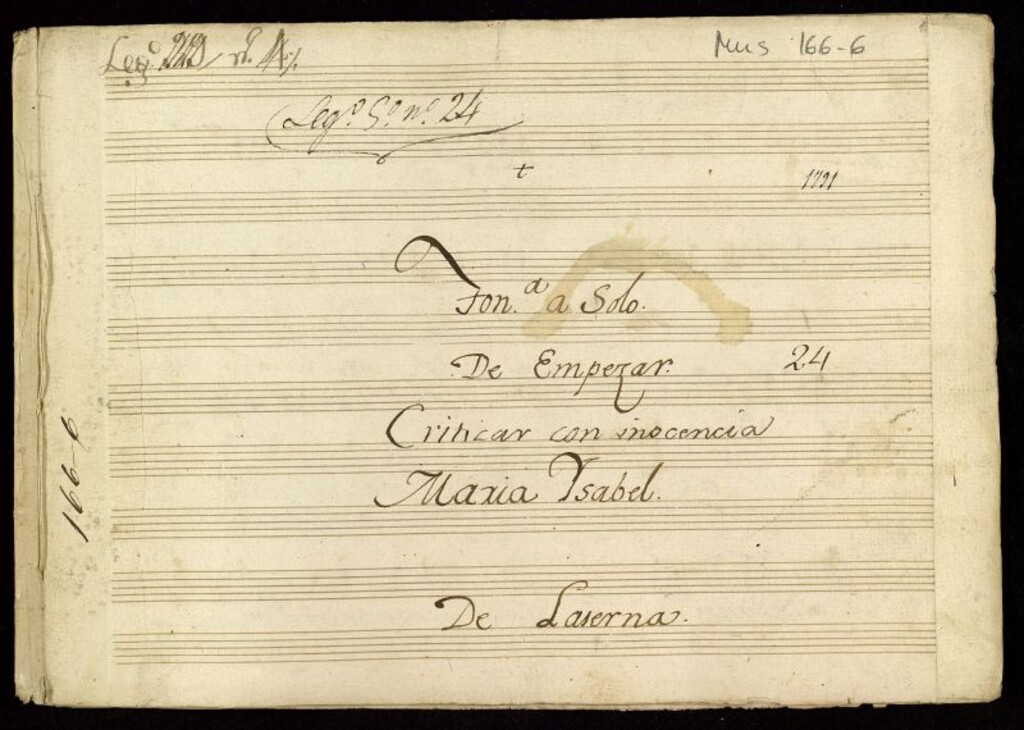 Mus 166-6
Leg.º
Leg.º 5.º n.º 24
1791
Ton.ª a Solo.
De Empezar. 24
Criticar con inocencia
Maria Ysabel.
De Laserna.
166-6